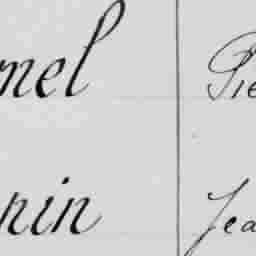 mel Pie
nin Jea